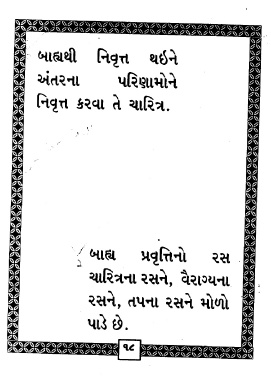 બાહ્યથી નિવૃત્ત થઇને
અંતરના પરિણામોને
નિવૃત્ત કરવા તે ચારિત્ર.
બાહ્ય પ્રવૃત્તિનો રસ
ચારિત્રના રસને, વૈરાગ્યના
રસને, તપના રસને મોળો
પાડે છે.
૧૮